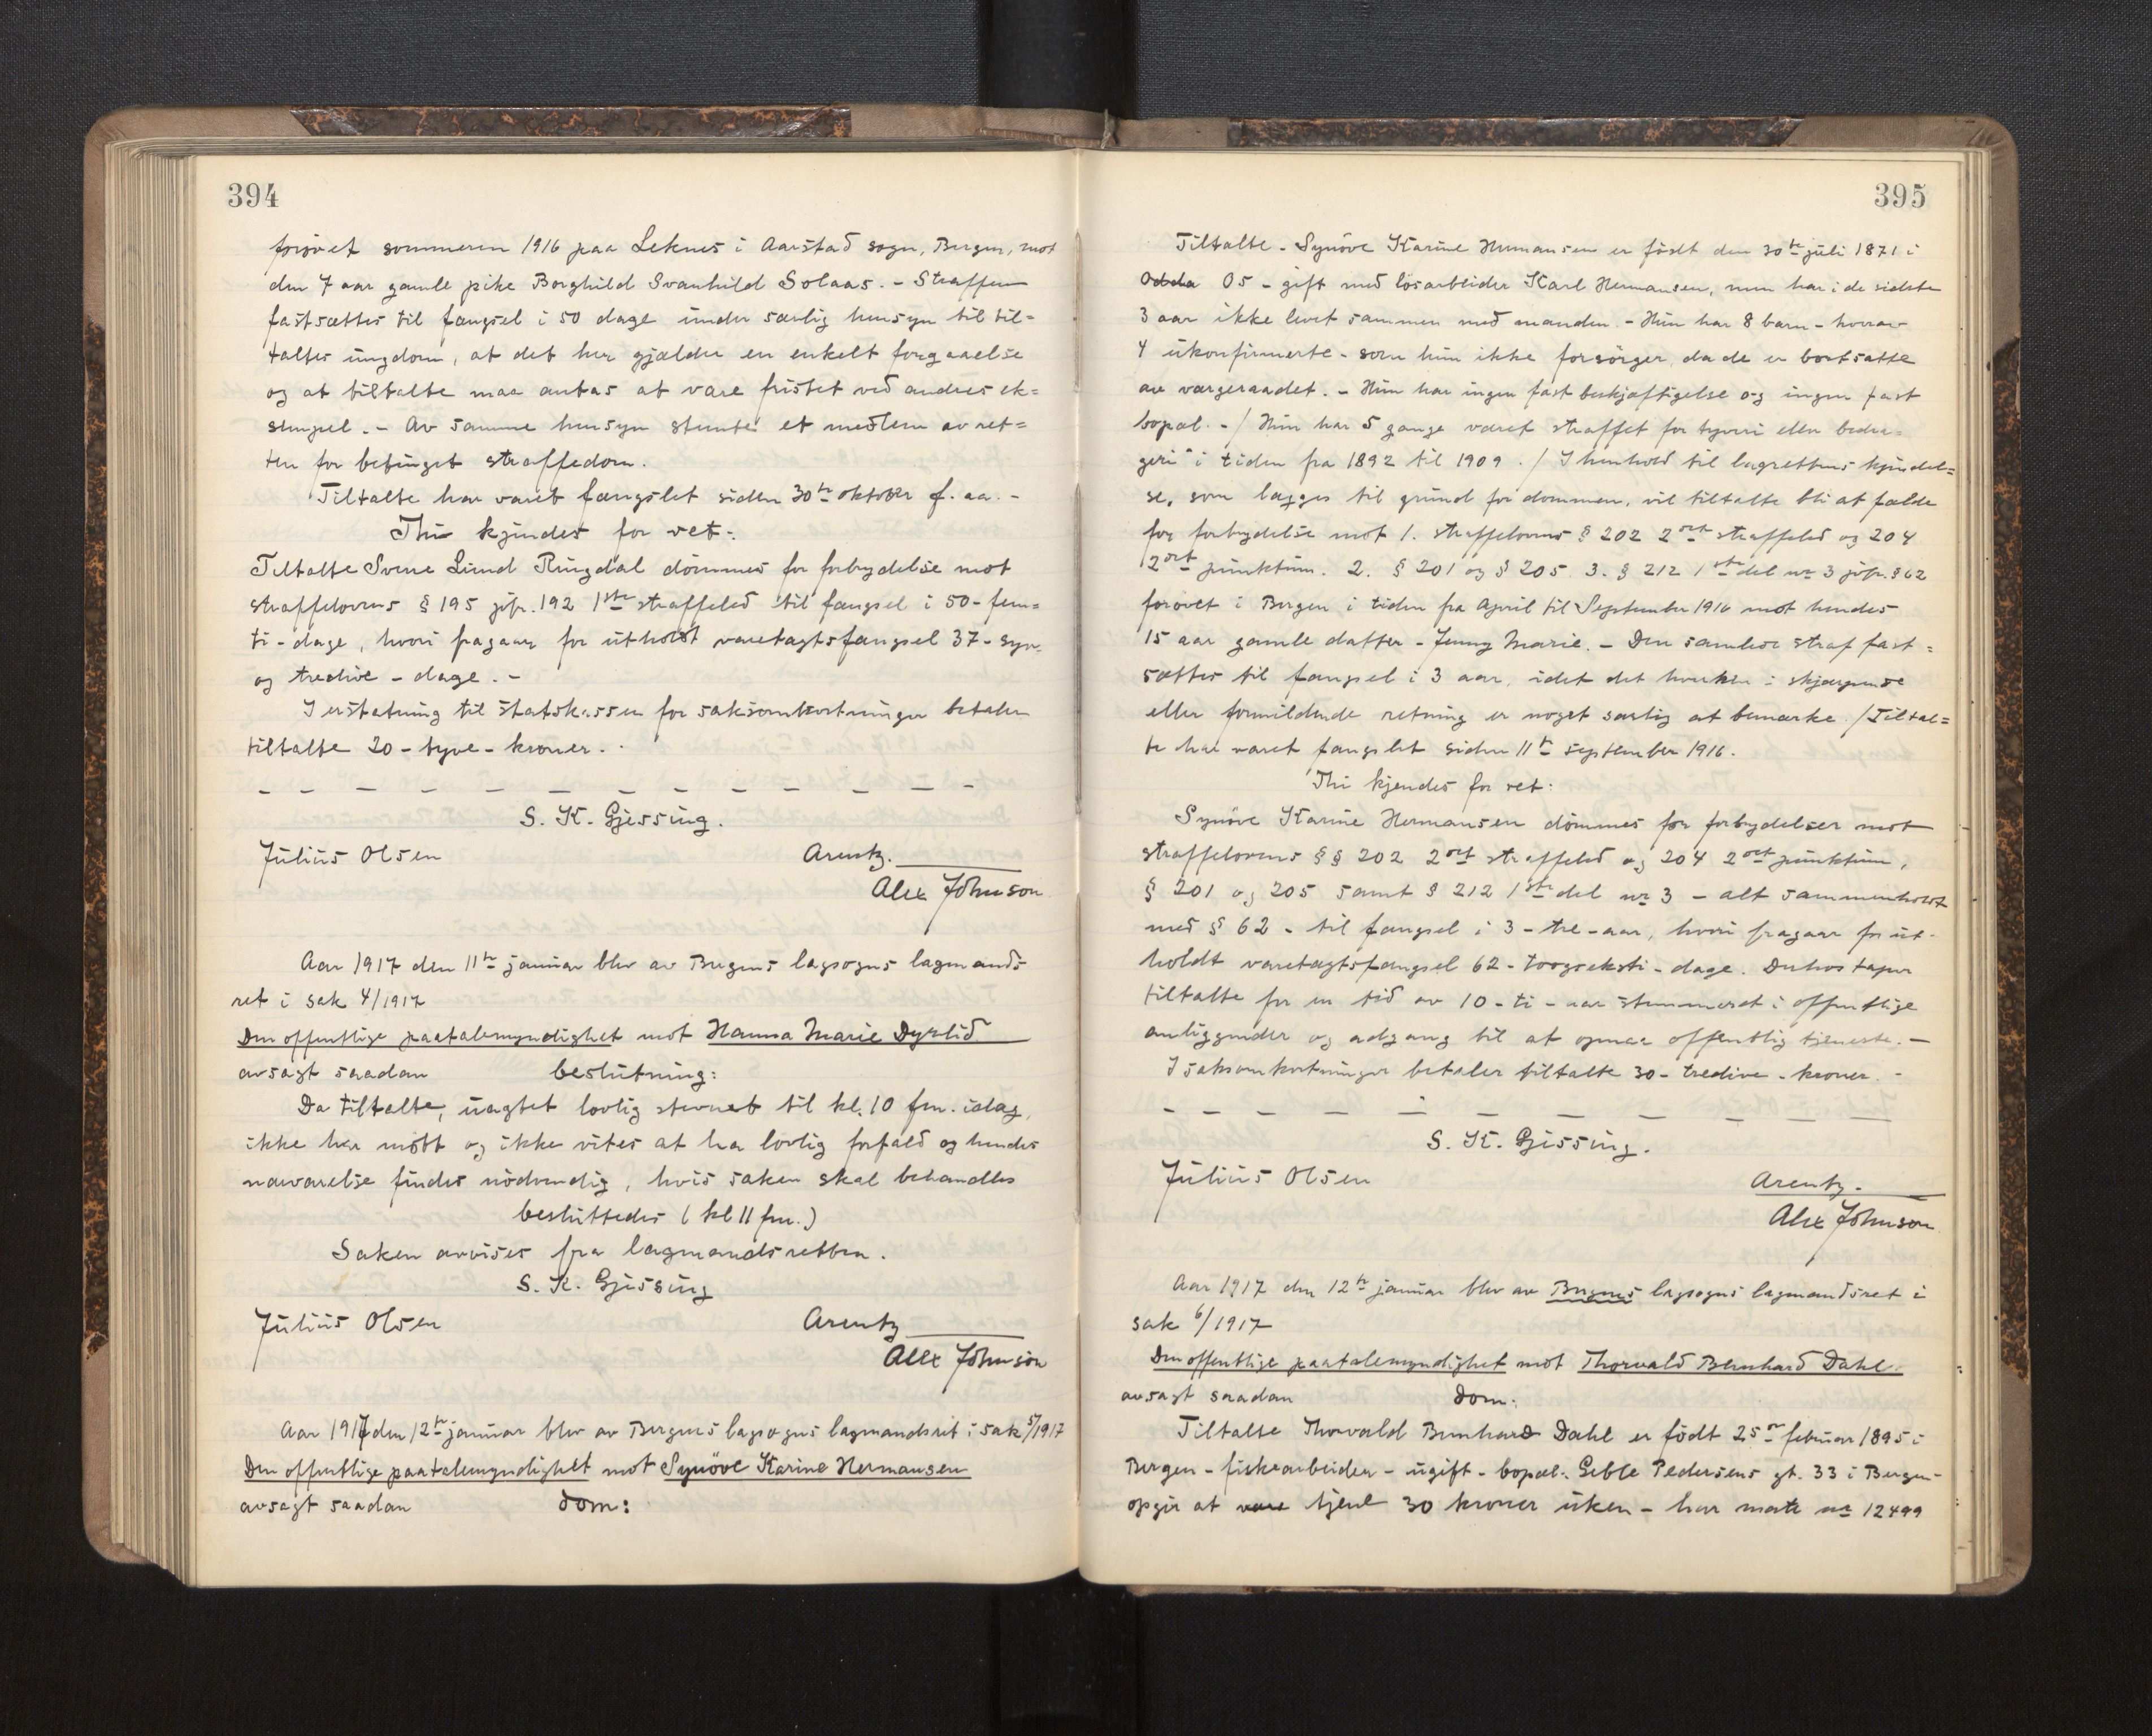 394
forövet sommeren 1916 paa Leknes i Aarstad sogn, Bergen, mot
den 7 aar gamle pike Borghild Svanhild Solaas. - Straffen
fastsættes til fængsel i 50 dage under særlig hensyn til til=
taltes ungdom, at det her gjælder en enkelt forgaaelse
og at tiltalte maa antas at være fristet ved andres ek=
sempel. - Av samme hensyn stemte et medlem av ret=
ten for betinget straffedom.
Tiltalte har været fængslet siden 30te oktober f. aa. -
Thi kjendes for ret:
Tiltalte Sverre Lund Ringdal dömmes for forbrydelse mot
straffelovens § 195 jfr. 192 1ste straffeled til fængsel i 50 - fem=
ti - dage, hvori fragaar for utholdt varetægtsfængsel 37 - syv
og tredive - dage. -
I erstatning til statskassen for saksomkostninger betaler
tiltalte 20 - tyve - kroner. -
S. K. Gjessing.
Julius Olsen Arentz.
Alex Johnson
Aar 1917 den 11te januar blev av Bergens lagsogns lagmands
ret i sak 4/1917
Den offentlige paatalemyndighet mot Hanna Marie Dyrlid
avsagt saadan beslutning:
Da tiltalte, uagtet lovlig stevnet til kl. 10 fm. idag,
ikke har mött og ikke vites at ha lovlig forfald og hendes
nærværelse findes nödvendig, hvis saken skal behandles
besluttedes (kl 11 fm.)
Saken avvises fra lagmandsretten.
S. K. Gjessing
Julius Olsen Arentz
Alex Johnson
Aar 1917 den 12te januar blev av Bergens lagsogns lagmandsret i sak 5/1917
Den offentlige paatalemyndighet mot Synöve Karine Hermansen
avsagt saadan dom:
395
Tiltalte - Synöve Karine Hermansen er födt den 30te juli 1871 i
Odda Os - gift med lösarbeider Karl Hermansen, men har i de sidste
3 aar ikke levet sammen med manden. - Hun har 8 barn - hvorav
4 ukonfirmerte - som hun ikke forsörger, da de er bortsatte
av værgeraadet. - Hun har ingen fast beskjæftigelse og ingen fast
bopæl. - / Hun har 5 gange været straffet for tyveri eller bedra=
geri i tiden fra 1892 til 1909. / I henhold til lagrettens kjendel=
se, som lægges til grund for dommen, vil tiltalte bli at fælde
for forbrydelse mot 1. straffelovens § 202 2det straffeled og 204
2det punktum. 2. § 201 og § 205. 3. § 212 1ste del nr 3 jfr. § 62
forövet i Bergen i tiden fra April til September 1916 mot hendes
15 aar gamle datter - Jenny Marie. - Den samlede straf fast=
sættes til fængsel i 3 aar, idet det hverken i skjærpende
eller formildende retning er noget særlig at bemærke. / Tiltal=
te har været fængslet siden 11te september 1916.
Thi kjendes for ret:
Synöve Karine Hermansen dömmes for forbydelser mot
straffelovens §§ 202 2det straffeled og 204 2det punktum,
§ 201 og 205 samt § 212 1ste del nr 3 - alt sammenholdt
med § 62 - til fængsel i 3 - tre - aar, hvori fragaar for ut-
holdt varetægtsfængsel 62 - toogseksti - dage. Derhos taper
tiltalte for en tid av 10 - ti - aar stemmeret i offentlige
anliggender og adgang til at opnaa offentlig tjeneste. -
I saksomkostninger betaler tiltalte 30 - tredive - kroner. -
S. K. Gjessing.
Julius Olsen Arentz.
Alex Johnson
Aar 1917 den 12te januar blev av Bergens lagsogns lagmandsret i
sak 6/1917
Den offentlige paatalemyndighet mot Thorvald Bernhard Dahl.
avsagt saadan dom:
Tiltalte Thorvald Bernhard Dahl er födt 25de februar 1895 i
Bergen - fiskearbeider - ugift - bopæl: Geble Pedersens gt. 33 i Bergen -
opgir at være tjene 30 kroner uken - har mærke nr 12499